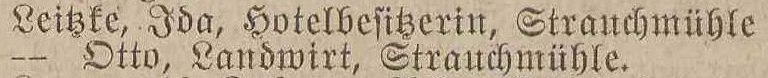 Leitzke, Ida, Hotelbesitzerin, Strauchmühle
-- Otto, Landwirt, Strauchmühle.